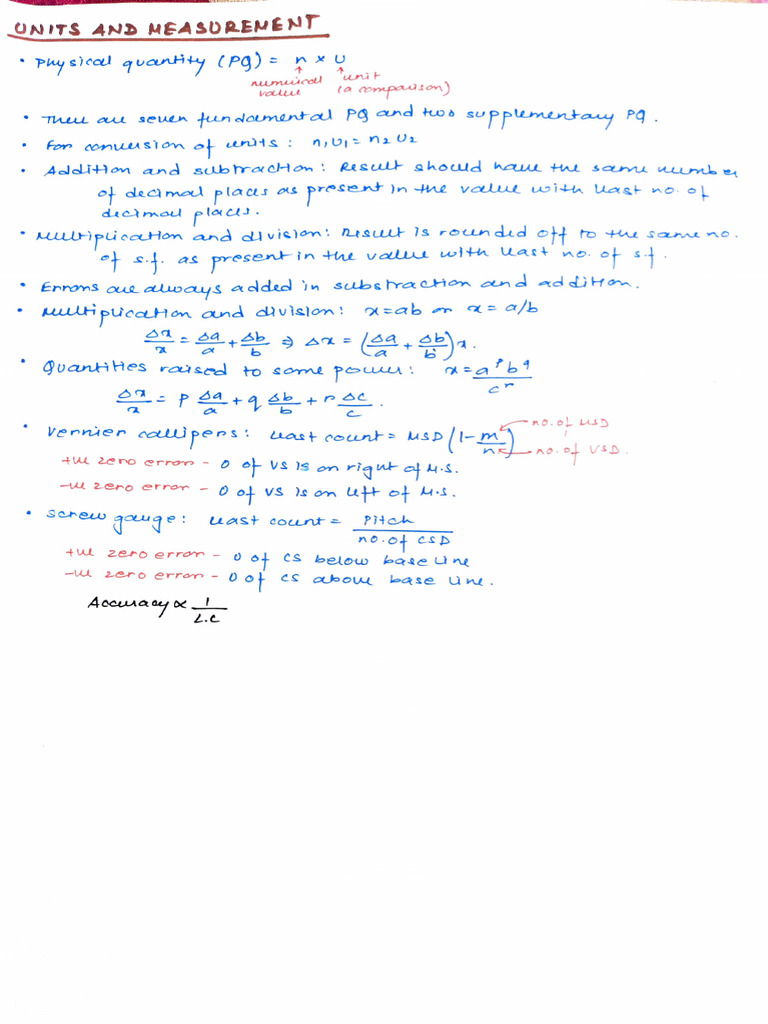 UNITS AND MEASUREMENT
• Physical quantity (PQ) = n × U
numerical value
unit (a comparison)
• There are seven fundamental PQ and two supplementary PQ.
• For conversion of units : n₁U₁ = n₂U₂
• Addition and subtraction : Result should have the same number
of decimal places as present in the value with least no. of
decimal places.
• Multiplication and division : Result is rounded off to the same no.
of s.f. as present in the value with least no. of s.f.
• Errors are always added in substraction and addition.
• Multiplication and division : x = ab or x = a/b
Δx/x = Δa/a + Δb/b ⇒ Δx = (Δa/a + Δb/b) x.
• Quantities raised to some power : x = a^p b^q / c^r
Δx/x = p Δa/a + q Δb/b + r Δc/c .
• Vernier callipers : least count = MSD (1 - m/n)
no. of MSD
no. of VSD.
+ve zero error - 0 of VS is on right of M.S.
-ve zero error - 0 of VS is on left of M.S.
• Screw gauge : least count = Pitch / no. of CSD
+ve zero error - 0 of CS below base line
-ve zero error - 0 of CS above base line.
Accuracy ∝ 1 / L.C